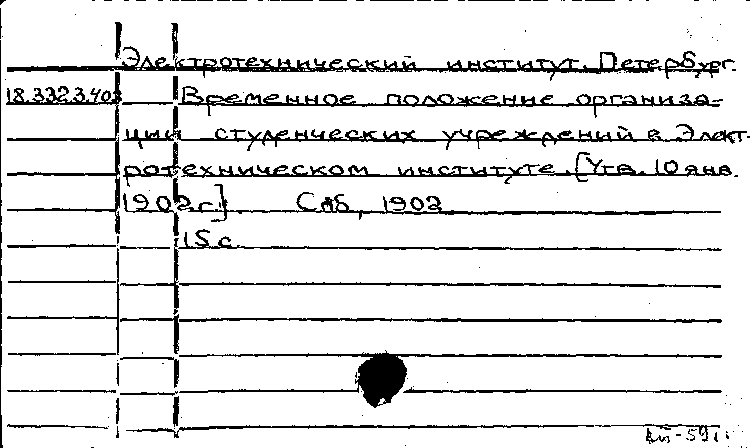 Электротехнический институт. Петербург.
18.332.3.403 Временное положение организа-
ции студенческих учреждений в Элект-
ротехническом институте. [Утв. 10 янв.
1902 г.]. Спб, 1902
15 с.